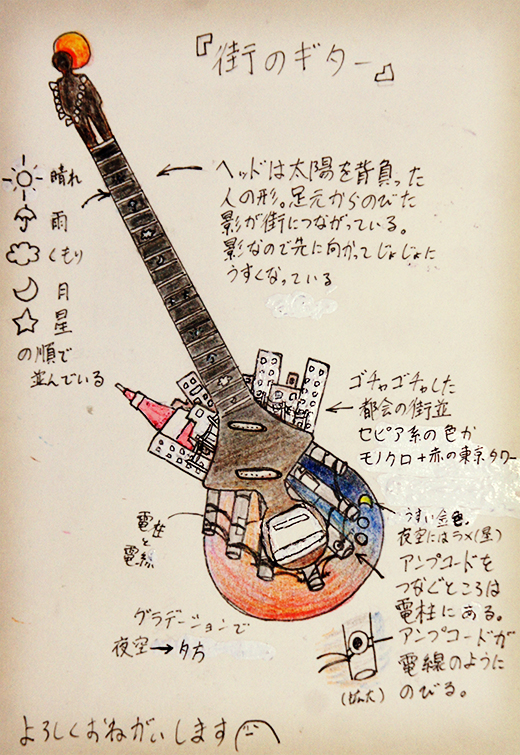 『街のギター』
ヘッドは太陽を背負った
人の形。足元からのびた
影が街につながっている。
影なので先に向かってじょじょに
うすくなっている
晴れ
雨
くもり
月
星
の順で
並んでいる
ゴチャゴチャした
都会の街並
セピア系の色か
モノクロ+赤の東京タワー
うすい金色。
夜空にはラメ(星)
アンプコードを
つなぐところは
電柱にある。
アンプコードが
電線のように
のびる。
電柱
と
電線
グラデーションで
夜空→夕方
(かくだい)
よろしくおねがいします